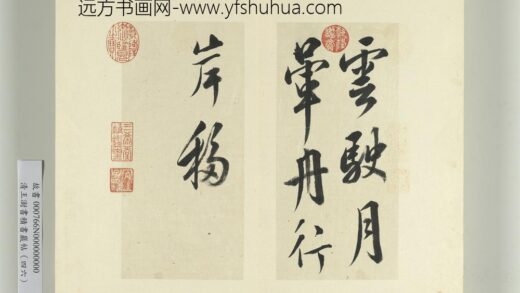 远方书画网-www.yfshuhua.com
雲駛月
暈舟行
岸移
三希堂精鑑璽
宜子孫
故書 000766N000000000
清王澍書積書巖帖(四六)